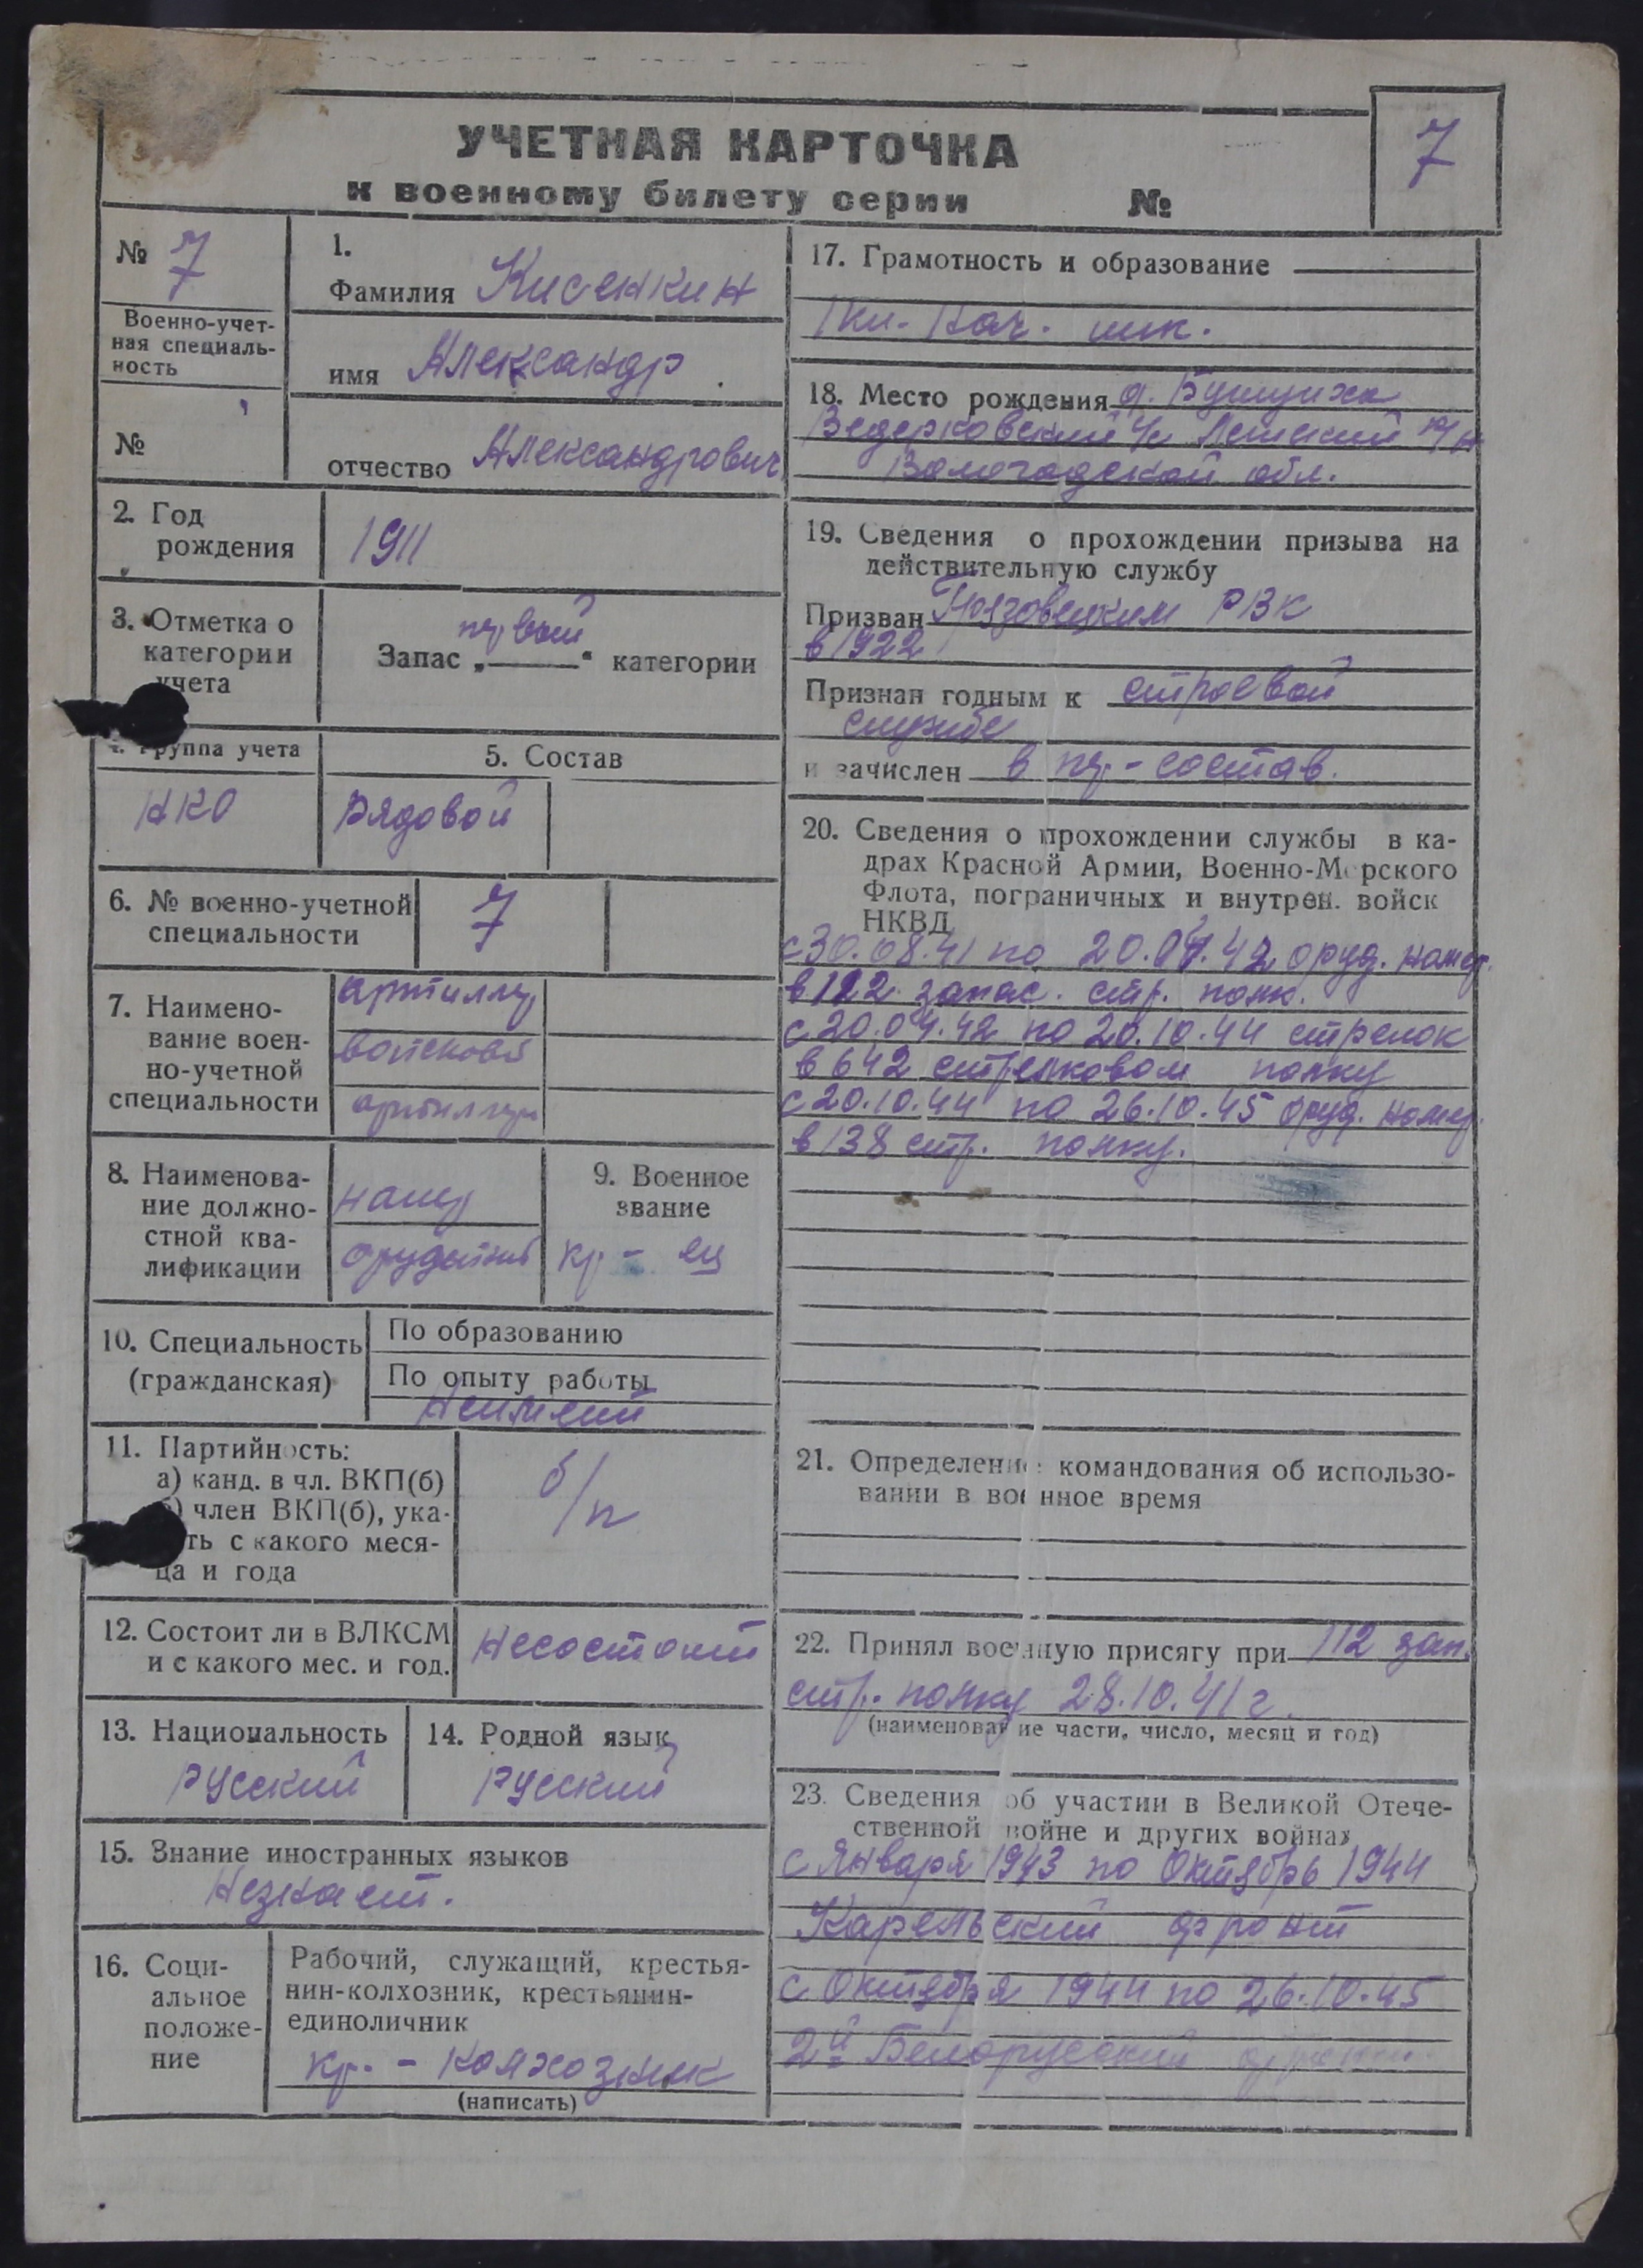 7
УЧЕТНАЯ КАРТОЧКА
к военному билету серии №
№ 7
Военно-учет-
ная специаль-
ность
№
1.
Фамилия Кисенкин
имя Александр
отчество Александрович
2. Год
рождения
1911
3. Отметка о
категории
учета
первой
Запас „ “ категории
4. Группа учета
НКО
5. Состав
Рядовой
6. № военно-учетной
специальности
7
7. Наимено-
вание воен-
но-учетной
специальности
артиллер
войсковой
артиллер
8. Наименова-
ние должно-
стной ква-
лификации
номер
орудейный
9. Военное
звание
кр-ец
10. Специальность
(гражданская)
По образованию
По опыту работы
Неимеет
11. Партийность:
а) канд. в чл. ВКП(б)
б) член ВКП(б), ука-
ть с какого меся-
ца и года
б/п
12. Состоит ли в ВЛКСМ
и с какого мес. и год.
Несостоит
13. Национальность
русский
14. Родной язык
русский
15. Знание иностранных языков
Незнает.
16. Соци-
альное
положе-
ние
Рабочий, служащий, крестья-
нин-колхозник, крестьянин-
единоличник
кр. - колхозник
(написать)
17. Грамотность и образование
1 кл. Нач. шк.
18. Место рождения д. Бушуиха
Ведерковский с/с Лежский р/н
Вологодской обл.
19. Сведения о прохождении призыва на
действительную службу
Призван Грязовецким РВК
в 1922
Признан годным к строевой
службе
и зачислен в пер-состав.
20. Сведения о прохождении службы в ка-
драх Красной Армии, Военно-Морского
Флота, пограничных и внутрен. войск
НКВД
с 30.08.41 по 20.04.42 оруд. номер.
в 112 запас. стр. полк.
с 20.04.42 по 20.10.44 стрелок
в 642 стрелковом полку
с 20.10.44 по 26.10.45 оруд. номер.
в 138 стр. полку.
21. Определение командования об использо-
вании в военное время
22. Принял военную присягу при 112 зап.
стр. полку 28.10.41 г.
(наименование части, число, месяц и год)
23. Сведения об участии в Великой Отече-
ственной войне и других войнах
с Января 1943 по Октябрь 1944
Карельский фронт
с Октября 1944 по 26.10.45
2й Белорусский фронт